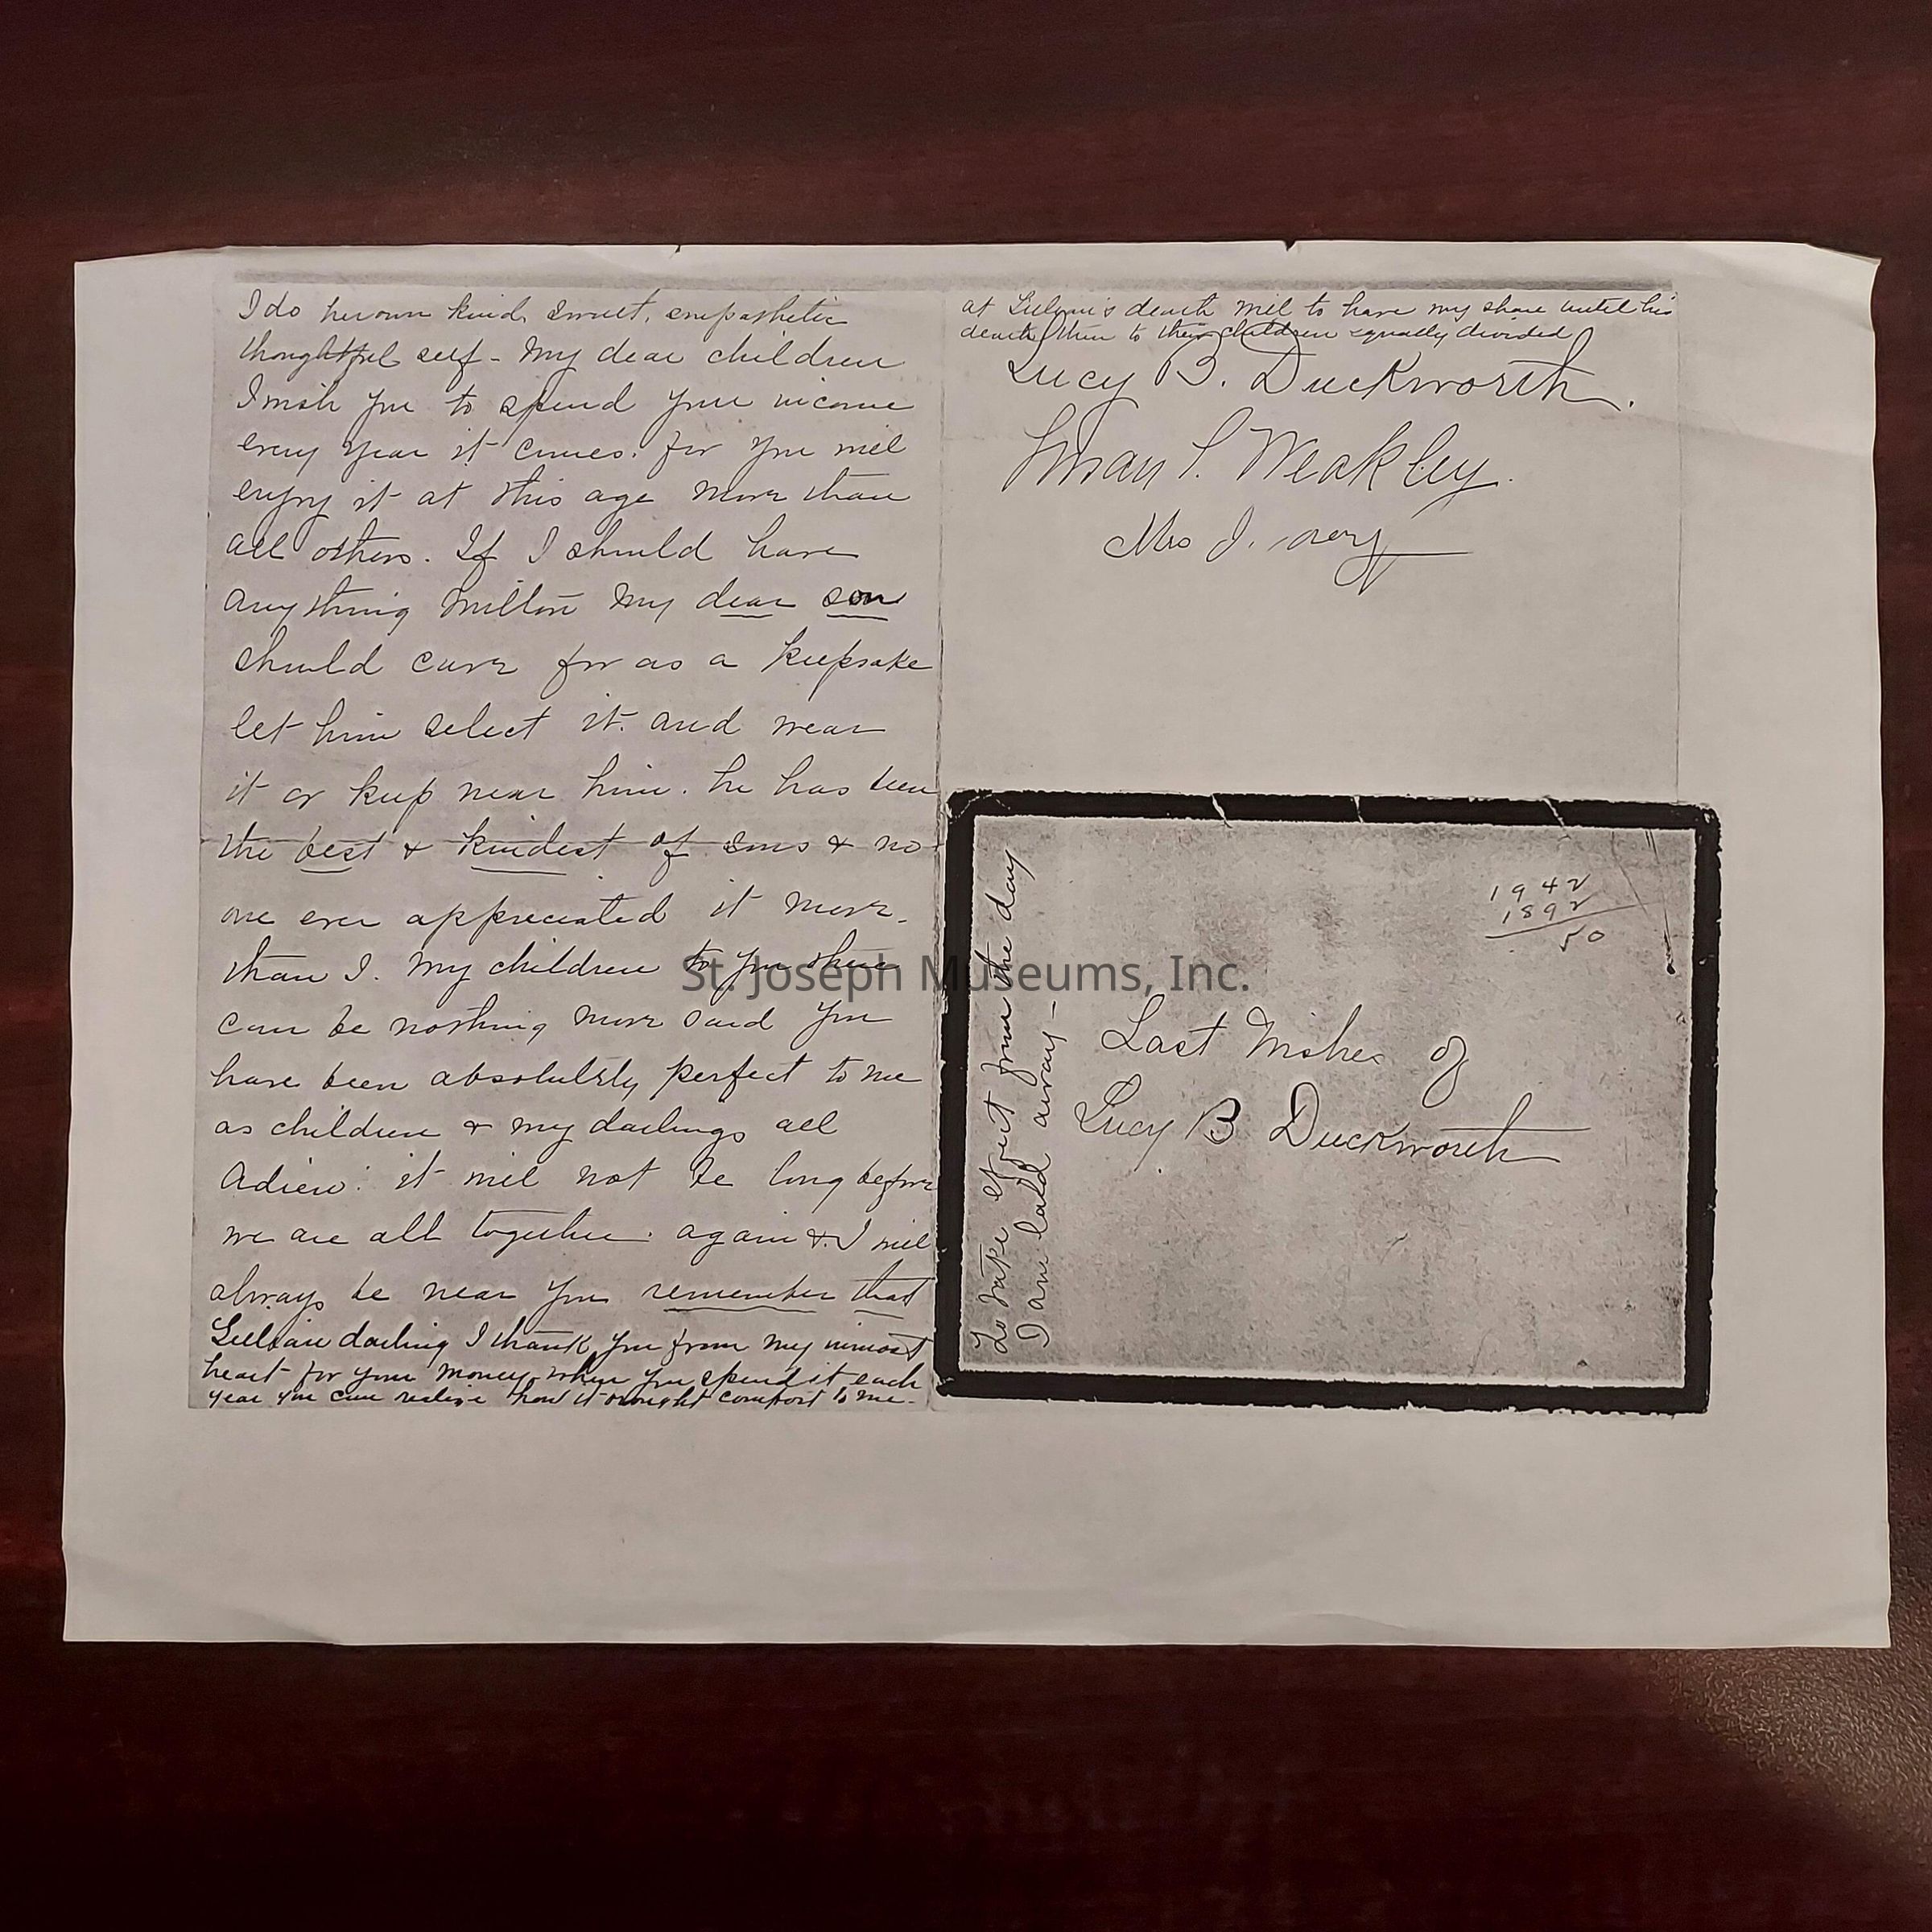 I do her own kind, sweet, simpathetic
thoughtful self - My dear children
I wish you to spend your income
every year it comes. for you will
enjoy it at this age more than
all others. If I should have
anything Milton my dear son
should care for as a keepsake
let him select it. and wear
it or keep near him. he has been
the best & kindest of sons & no
one ever appreciated it more.
than I. My children to you there
can be nothing more said you
have been absolutely perfect to me
as children & my darlings all
Adieu: it will not be long before
we are all together. again & I will
always be near you remember that
darling I thank you from my inmost
heart for your money, when you spend it each
year you can realize how it brought comfort to me.
at death will to have my share until his
death then to their children equally divided
Lucy B. Duckworth.
Weakley.
Mrs J.
1942
1892
50
Last Wishes of
Lucy B Duckworth
To take effect from the day
I am laid away -
St. Joseph Museums, Inc.